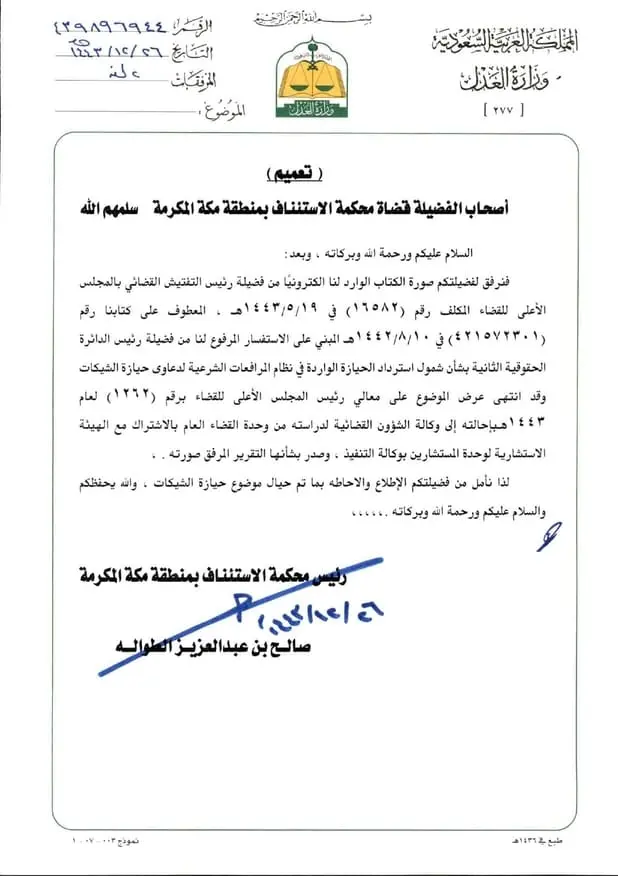 بسم الله الرحمن الرحيم
المملكة العربية السعودية
وزارة العدل
[ ٢٧٧ ]
وزارة العدل
الرقم: ٤٣٩٨٩٦٩٤٤
التاريخ: ١٤٤٣/١٢/٢٦
المرفقات:
الموضوع:
( تعميم )
أصحاب الفضيلة قضاة محكمة الاستئناف بمنطقة مكة المكرمة سلمهم الله
السلام عليكم ورحمة الله وبركاته ، وبعد:
فنرفق لفضيلتكم صورة الكتاب الوارد لنا الكترونيًا من فضيلة رئيس التفتيش القضائي بالمجلس
الأعلى للقضاء المكلف رقم (١٦٥٨٢) في ١٤٤٣/٥/١٩هـ ، المعطوف على كتابنا رقم
(٤٢١٥٧٢٣٠١) في ١٤٤٢/٨/١٠هـ المبني على الاستفسار المرفوع لنا من فضيلة رئيس الدائرة
الحقوقية الثانية بشأن شمول استرداد الحيازة الواردة في نظام المرافعات الشرعية لدعاوى حيازة الشيكات
وقد انتهى عرض الموضوع على معالي رئيس المجلس الأعلى للقضاء برقم (١٢٦٢) لعام
١٤٤٣هـ بإحالته إلى وكالة الشؤون القضائية لدراسته من وحدة القضاء العام بالاشتراك مع الهيئة
الاستشارية لوحدة المستشارين بوكالة التنفيذ ، وصدر بشأنها التقرير المرفق صورته . ،
لذا نأمل من فضيلتكم الإطلاع والاحاطه بما تم حيال موضوع حيازة الشيكات ، والله يحفظكم
والسلام عليكم ورحمة الله وبركاته .،،،،،
رئيس محكمة الاستئناف بمنطقة مكة المكرمة
١٤٤٣/١٢/٢٦
صالح بن عبدالعزيز الطواله
طبع في ١٤٣٦هـ
نموذج ٠٠٣ - ٠٧ - ١٠